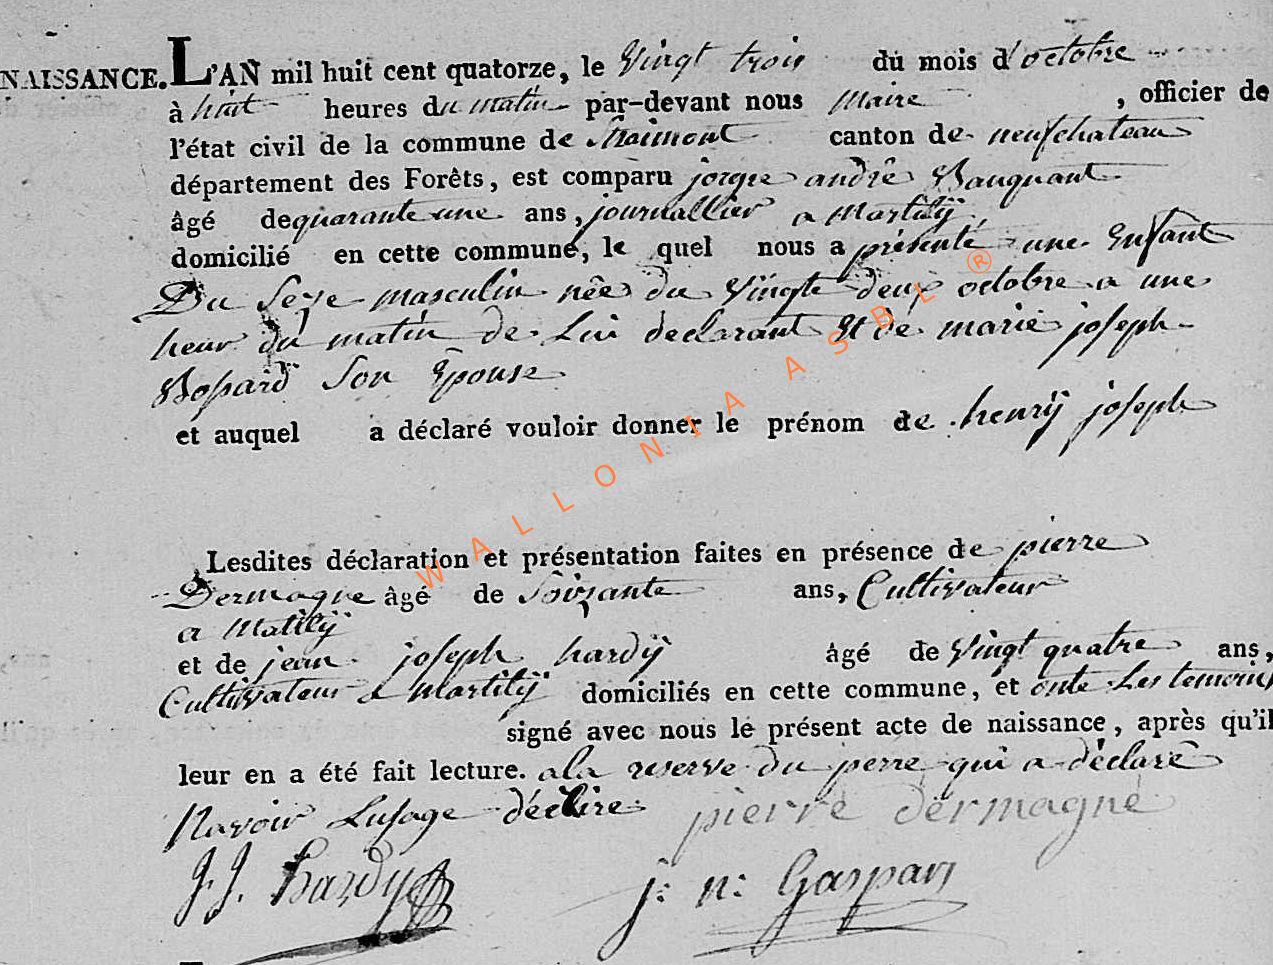 NAISSANCE. L'AN mil huit cent quatorze, le Vingt trois du mois d'octobre
à huit heures du matin par-devant nous maire , officier de
l'état civil de la commune de Straimont canton de neufchateau
département des Forêts, est comparu jorgre andrê Bauquant
âgé de quarante une ans, journallier a Martilÿ,
domicilié en cette commune, le quel nous a présenté une Enfant
Du Sexe masculin née du Vingte deux octobre a une
heur du matin de Lui declarant Et de marie joseph
Bossard Son Epouse
et auquel a déclaré vouloir donner le prénom de henrÿ joseph
Lesdites déclaration et présentation faites en présence de pierre
Dermagne âgé de Soixante ans, Cultivateur
a Matilÿ
et de jean joseph hardÿ âgé de Vingt quatre ans,
Cultivateur a Martilÿ domiciliés en cette commune, et onte Les temoins
signé avec nous le présent acte de naissance, après qu'il
leur en a été fait lecture. ala reserve du perre qui a déclarê
Navoir Lusage décrire pierre dermagne
J. J. Hardy j: n: Gaspar
WALLONIA ASBL ®